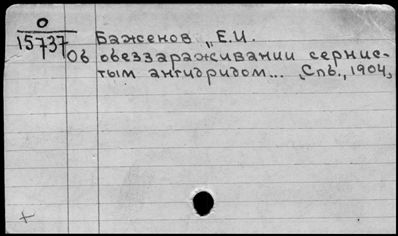 О
15737
Баженов, Е.И.
Об обеззараживании сернис-
тым ангидридом... Спб., 1904.